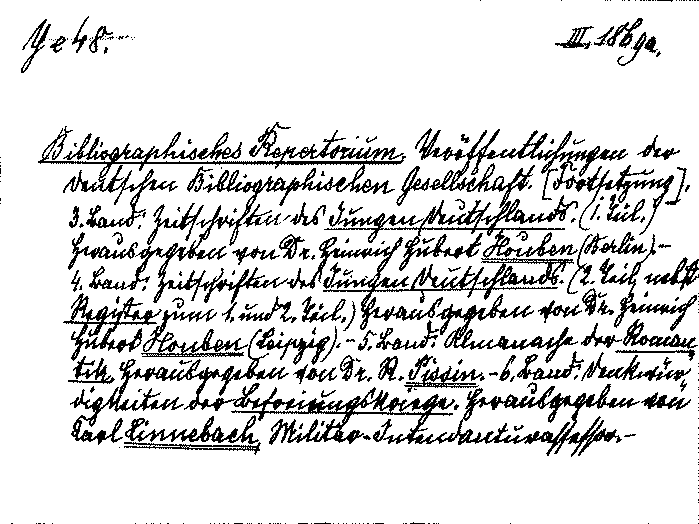 Ye 48.
III. 186 ga.
Bibliographisches Repertorium. Veröffentlichungen der
Deutschen Bibliographischen Gesellschaft. [Fortsetzung],
3. Band: Zeitschriften des Jungen Deutschlands. (1. Teil.)
Herausgegeben von Dr. Heinrich Hubert Houben (Berlin). -
4. Band: Zeitschriften des Jungen Deutschlands. (2. Teil, nebst
Register zum 1. und 2. Teil.) Herausgegeben von Dr. Heinrich
Hubert Houben (Leipzig). - 5. Band: Almanache der Roman
tik, Herausgegeben von Dr. R. Pissin. - 6. Band: Denkwür
digkeiten der Befreiungskriege. Herausgegeben von
Carl Linnebach, Militär-Intendanturassessor. -